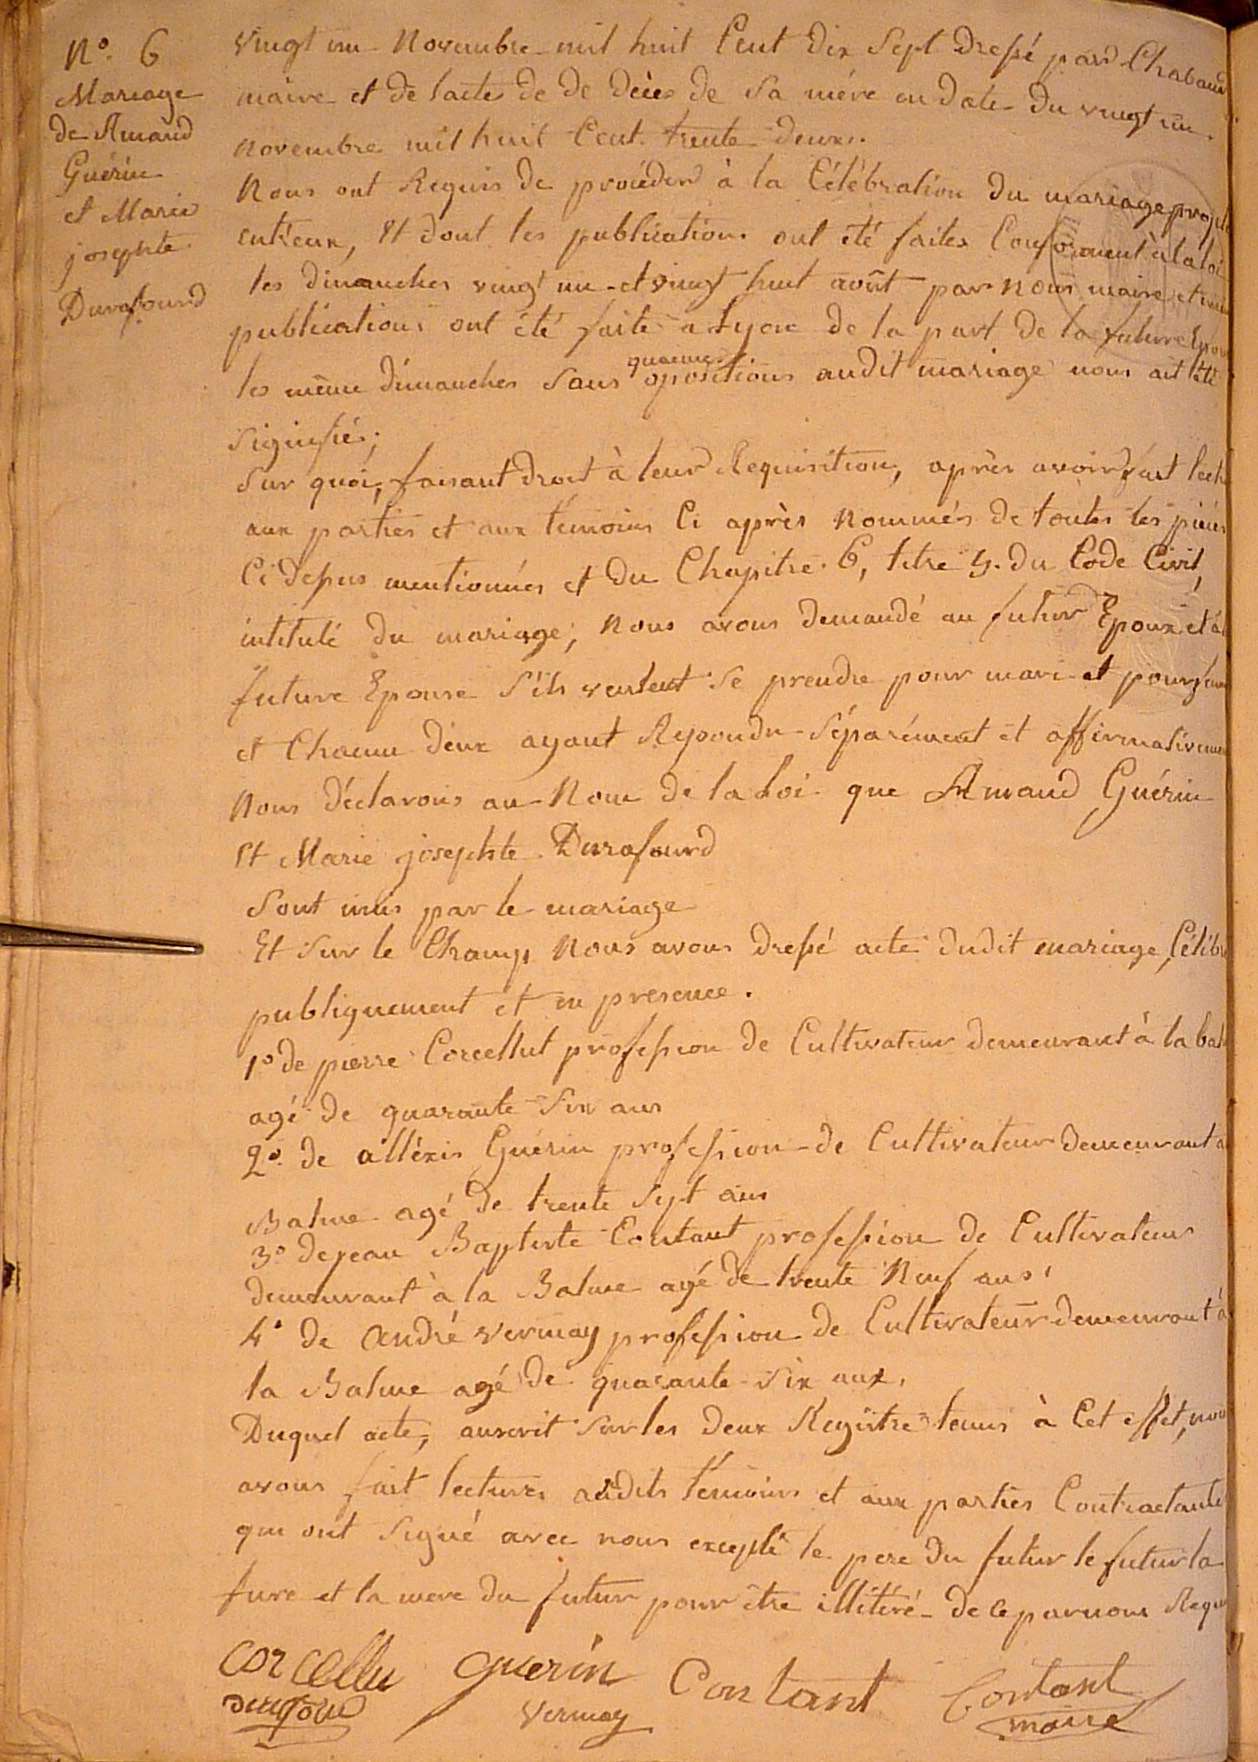 N° 6
Mariage
de Amand
Guérin
et Marie
josephte
Durafourd
vingt un Novembre mil huit Cent dix Sept dressé par Chabaud
maire et de lacte de de décès de Sa mére en date du vingt un
novembre mil huit Cent trente deux.
Nous ont Requis de procéder à la Célébration du mariage projeté
entr'eux, Et dont les publications ont été faites Conformément à la loi
les dimanches vingt un et vingt huit août par nous maire et
publications ont été faite a Lyon de la part de la future Epou
quaucunes
les même dimanches Sans opositions audit mariage nous ait été
Signifiés;
Sur quoi, faisant droit à leur Requisition, après avoir fait lect
aux parties et aux témoins Ci après Nommés de toutes les pièces
Ci dessus mentionnées et du Chapitre 6, titre 5. du Code Civil,
intitulé du mariage; Nous avons demandé au futur Epoux et à
future Epouse S'ils veulent Se prendre pour mari et pour fem
et Chacun deux ayant Repondu Séparément et affirmativemen
Nous Déclarons au Nom de la Loi que Amand Guérin
Et Marie josephte Durafourd
Sont unis par le mariage
Et Sur le Champ Nous avons dressé acte dudit mariage, Célébr
publiquement et en presence.
1° de pierre Corcellut profession de Cultivateur demeurant à la bal
agé de quarante Six ans
2° de alléxis Guérin profession de Cultivateur demeurant a
Balme agé de trente Sept ans
3° de jean Baptiste Contant profession de Cultivateur
demeurant à la Balme agé de trente Neuf ans,
4° de andré vermay profession de Cultivateur demeurant à
la Balme agé de quarante Six ans.
Duquel acte, inscrit Sur les deux Registre tenus à Cet effet, nou
avons fait lectures audits témoins et aux parties Contractante
qui ont Signé avec nous excepté le pere du futur le futur la
ture et la mere du futur pour être illitéré de ce par nous Requ
Corcellu Guerin Contant Contant
durafour Vermay maire